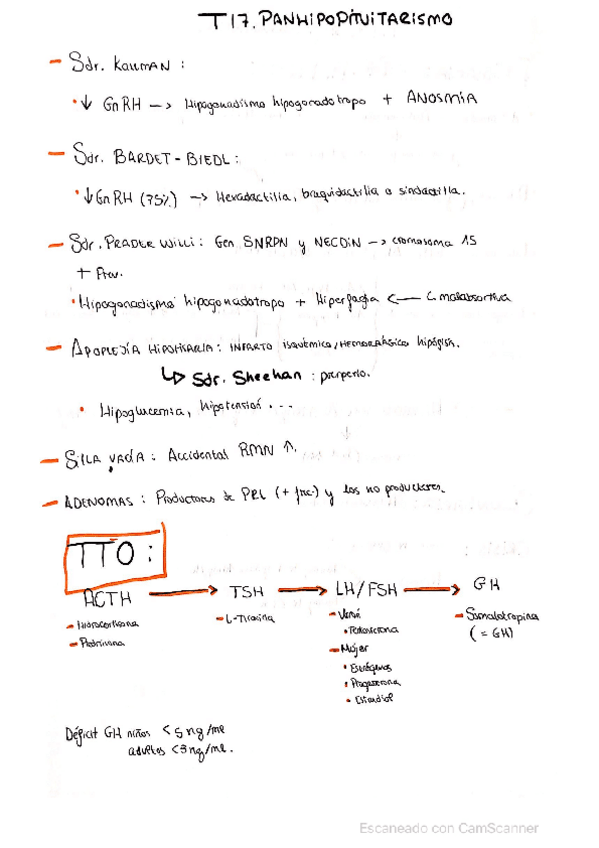 T17. PANHIPOPITUITARISMO
- Sdr. KALLMAN :
• ↓ GnRH -> Hipogonadismo hipogonadotropo + ANOSMIA
- Sdr. BARDET - BIEDL :
• ↓ GnRH (75%) -> Hexadactilia, braquidactilia o sindactilia.
- Sdr. PRADER WILLI : Gen SNRPN y NECDIN -> cromosoma 15
+ Frev.
• Hipogonadismo hipogonadotropo + Hiperfagia <- C. malabsortiva
- APOPLEJÍA HIPOFISARIA : INFARTO isquémico/HEMORRÁGICO hipófisis.
↳ Sdr. Sheehan : puerperio.
• Hipoglucemia, hipotensión ...
- SILLA VACÍA : Accidental RMN ↑.
- ADENOMAS : Productores de PRL (+ frec.) y los no productores.
TTO :
ACTH → TSH → LH/FSH → GH
- Hidrocortisona
- Prednisona
- L-Tiroxina
- Varón
• Testosterona
- Mujer
• Estrógenos
• Progesterona
• Estradiol
- Somatotropina
(= GH)
Déficit GH niños < 5 ng/ml
adultos < 3 ng/ml.
Escaneado con CamScanner